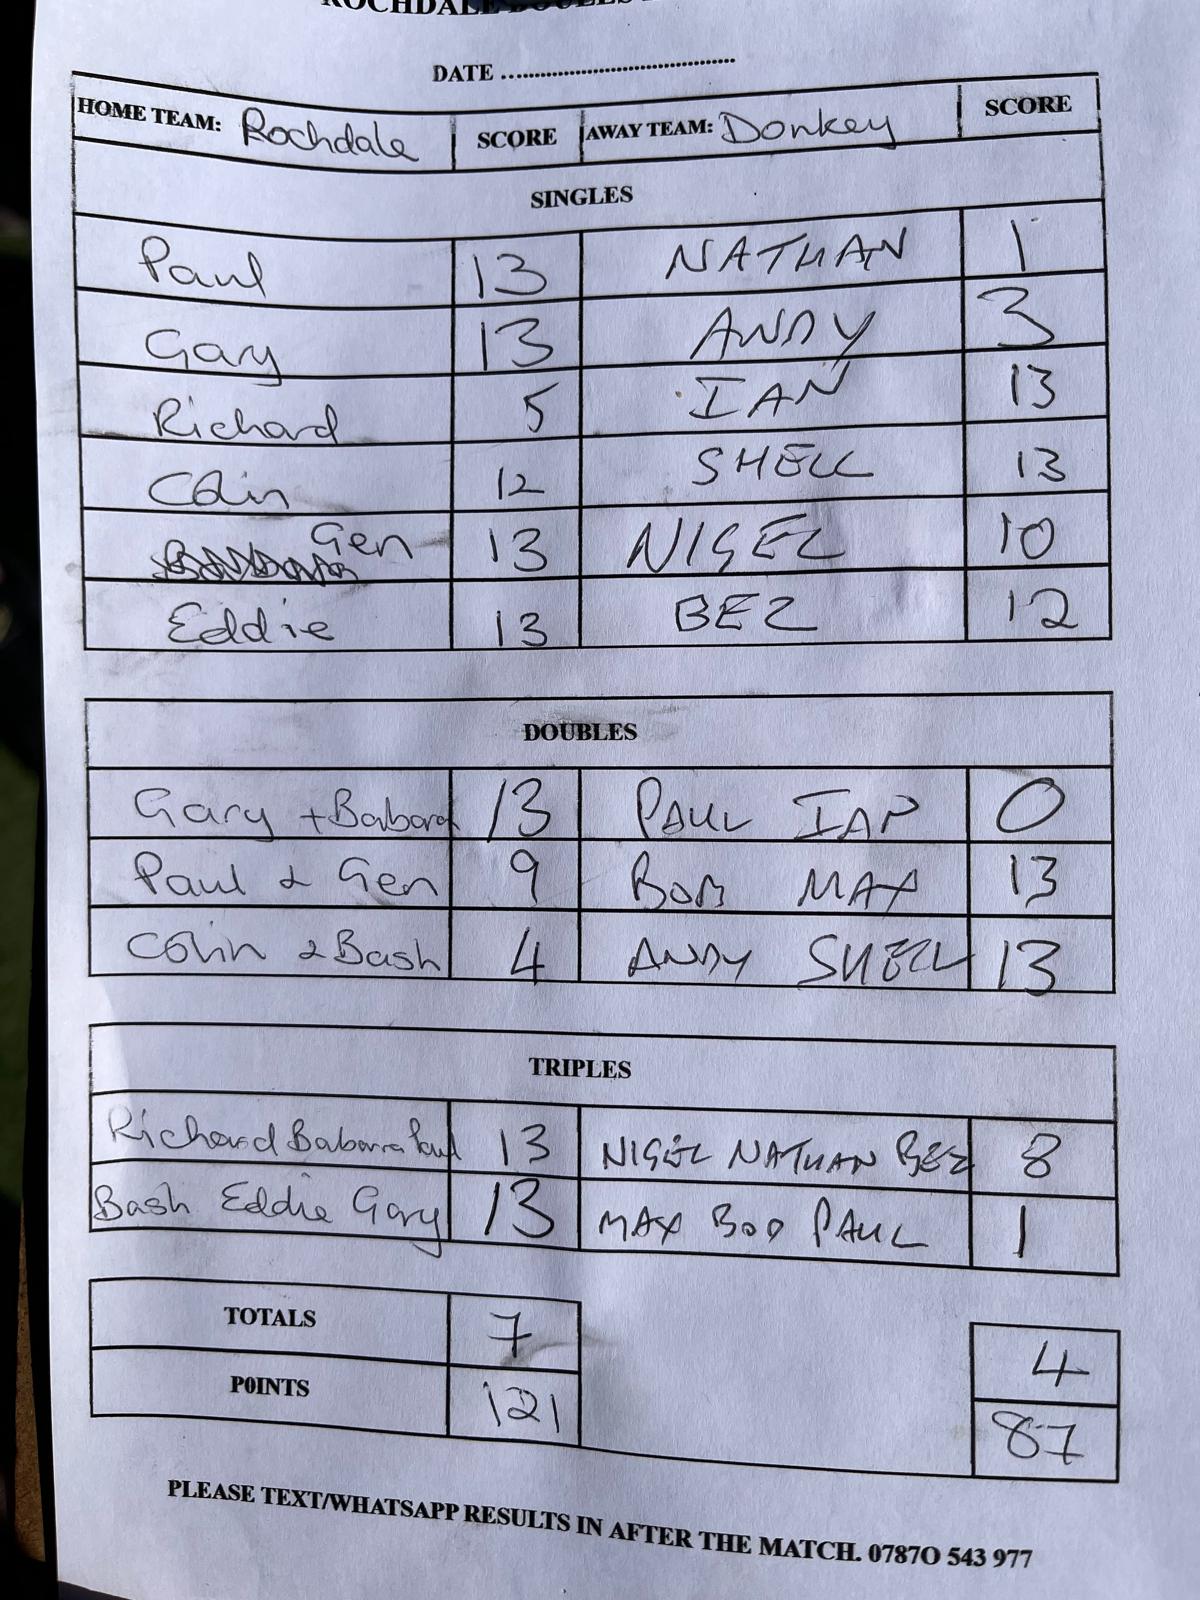 DATE ..........................................
HOME TEAM: Rochdale SCORE AWAY TEAM: Donkey SCORE
SINGLES
Paul 13 NATHAN 1
Gary 13 ANDY 3
Richard 5 IAN 13
Colin 12 SHELL 13
Gen 13 NIGEL 10
Eddie 13 BEZ 12
DOUBLES
Gary + Babara 13 PAUL IAN 0
Paul & Gen 9 BOB MAX 13
Colin & Bash 4 ANDY SHELL 13
TRIPLES
Richard Babara Paul 13 NIGEL NATHAN BEZ 8
Bash Eddie Gary 13 MAX BOB PAUL 1
TOTALS 7 4
POINTS 121 87
PLEASE TEXT/WHATSAPP RESULTS IN AFTER THE MATCH. 0787O 543 977